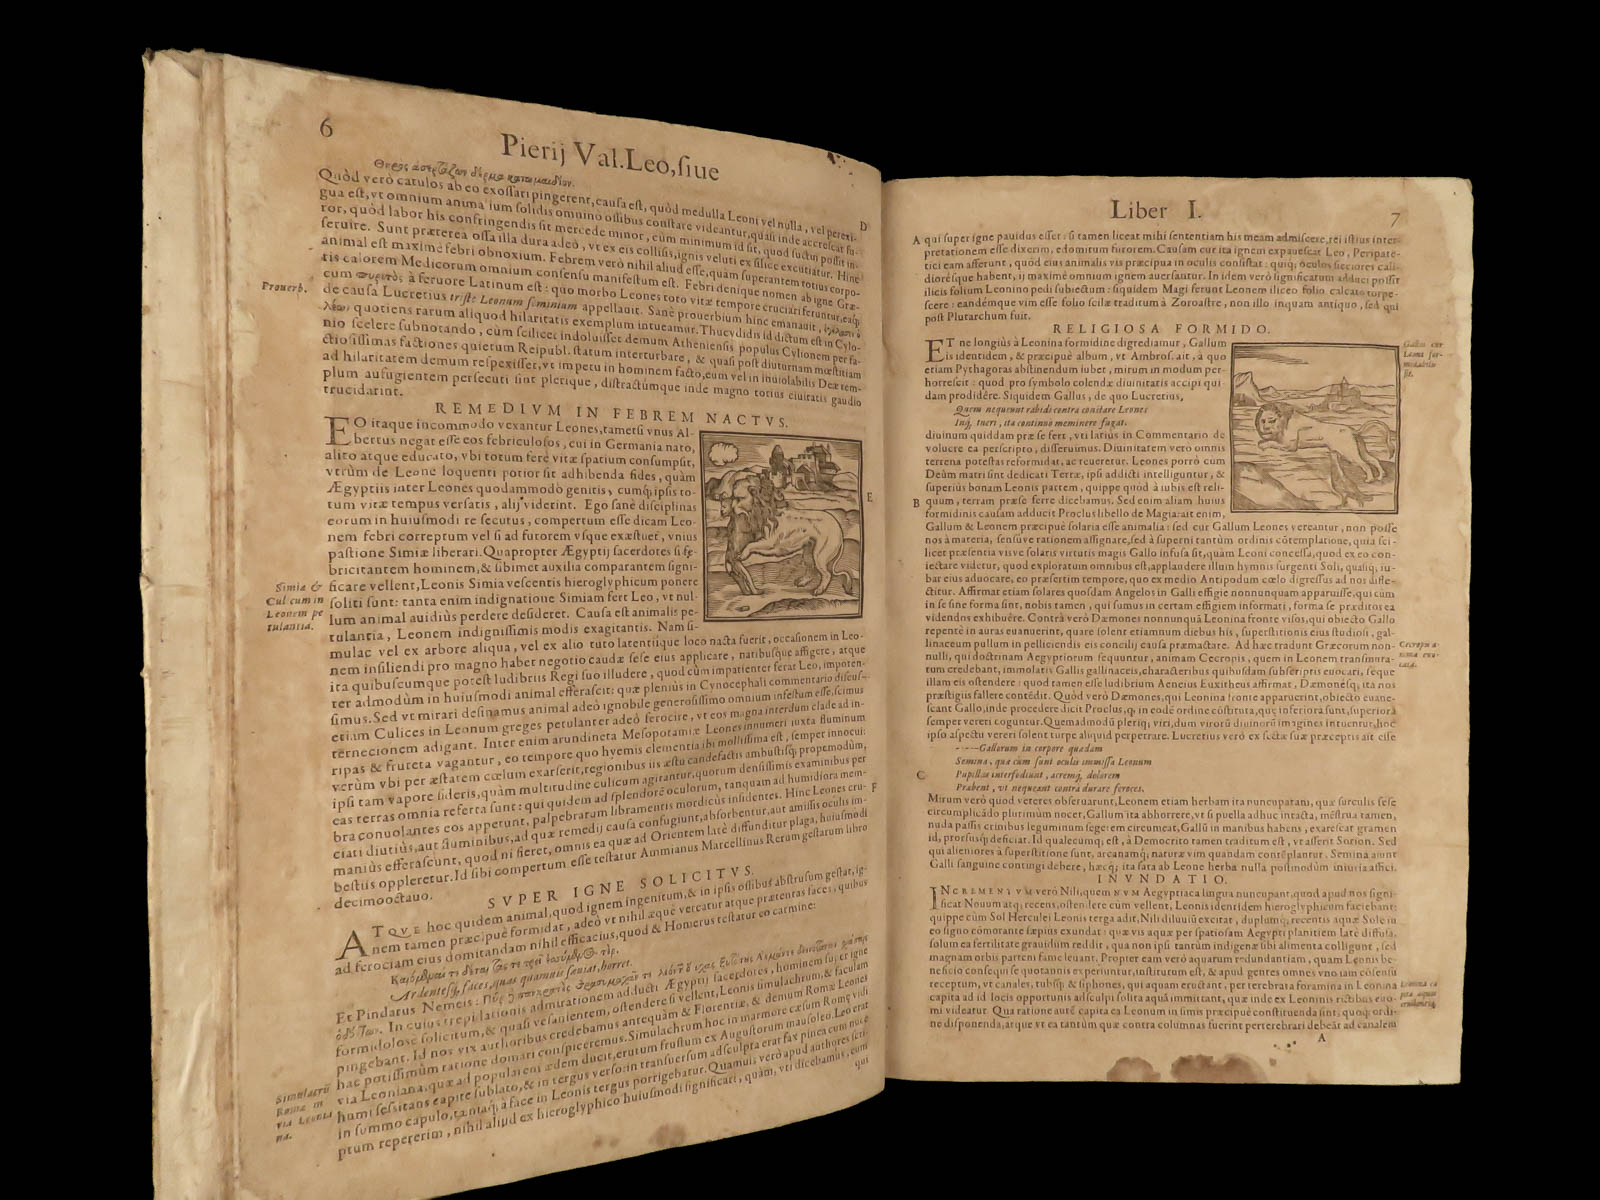 6
Pierij Val. Leo, ſiue
Quòd verò catulos ab eo exoſſari pingerent, cauſa eſt, quòd medulla Leoni vel nulla, vel perexi-
gua eſt, vt omnium anima ium ſolidis omnino oſſibus conſtare videantur, quaſi inde accreſcat fu-
ror, quòd labor his confringendis ſit mercede minor, cùm minimum id ſit, quod ſuctus poſſit in-
ſeruire. Sunt præterea oſſa illa dura adeò, vt ex eis colliſis, ignis veluti ex ſilice excutiatur. Hinc
animal eſt maximè febri obnoxium. Febrem verò nihil aliud eſſe, quàm ſuperantem totius corpo-
ris calorem Medicorum omnium conſenſu manifeſtum eſt. Febri denique nomen ab igne Græ-
cum πυρετὸς à feruore Latinum eſt: quo morbo Leones toto vitæ tempore cruciari feruntur, eaq́;
Prouerb.
de cauſa Lucretius triſte Leonum ſeminium appellauit. Sanè prouerbium hinc emanauit,
quotiens rarum aliquod hilaritatis exemplum intueamur. Thucydidis id dictum eſt in Cylo-
nio ſcelere ſubnotando, cùm ſcilicet indoluiſſet demum Athenienſis populus Cylionem per fa-
ctioſiſſimas factiones quietum Reipubl. ſtatum interturbare, & quaſi poſt diuturnam mœſtitiam
ad hilaritatem demum reſpexiſſet, vt impetu in hominem facto, eum vel in inuiolabilis Deæ tem-
plum aufugientem perſecuti ſint plerique, diſtractúmque inde magno totius ciuitatis gaudio
trucidarint.
REMEDIVM IN FEBREM NACTVS.
EO itaque incommodo vexantur Leones, tametſi vnus Al-
bertus negat eſſe eos febriculoſos, cui in Germania nato,
alito atque educato, vbi totum ferè vitæ ſpatium conſumpſit,
vtrùm de Leone loquenti potior ſit adhibenda fides, quàm
Ægyptiis inter Leones quodammodò genitis, cumq́; ipſis to-
tum vitæ tempus verſatis, alij viderint. Ego ſanè diſciplinas
eorum in huiuſmodi re ſecutus, compertum eſſe dicam Leo-
nem febri correptum vel ſi ad furorem vſque exæſtuet, vnius
paſtione Simiæ liberari. Quapropter Ægyptij ſacerdotes ſi fe-
bricitantem hominem, & ſibimet auxilia comparantem ſigni-
ficare vellent, Leonis Simia veſcentis hieroglyphicum ponere
ſoliti ſunt: tanta enim indignatione Simiam fert Leo, vt nul-
lum animal auidiùs perdere deſideret. Cauſa eſt animalis pe-
tulantia, Leonem indigniſſimis modis exagitantis. Nam ſi-
Simia &
Culcum in
Leonem pe
tulantia.
mulac vel ex arbore aliqua, vel ex alio tuto latentiique loco nacta fuerit, occaſionem in Leo-
nem inſiliendi pro magno habet negotio caudæ ſeſe eius applicare, natibuſque affigere, atque
ita quibuſcumque poteſt ludibriis Regi ſuo illudere, quod cùm impatienter ferat Leo, impoten-
ter admodùm in huiuſmodi animal efferaſcit: quæ pleniùs in Cynocephali commentario diſcuſ-
ſimus. Sed vt mirari deſinamus animal adeò ignobile generoſiſſimo omnium infeſtum eſſe, ſcimus
etiam Culices in Leonum greges petulanter adeò ferocire, vt eos magna interdum clade ad in-
ternecionem adigant. Inter enim arundineta Meſopotamiæ Leones innumeri iuxta fluminum
ripas & fruteta vagantur, eo tempore quo hyemis clementia ibi molliſſima eſt, ſemper innocui:
verùm vbi per æſtatem cœlum exarſerit, regionibus iis æſtu candefactis ambuſtiſq́; propemodùm,
ipſi tam vapore ſideris, quàm multitudine culicum agitantur, quorum denſiſſimis examinibus per
eas terras omnia referta ſunt: qui quidem ad ſplendorē oculorum, tanquam ad humidiora mem-
bra conuolantes eos appetunt, palpebrarum libramentis mordicùs inſidentes. Hinc Leones cru-
ciati diutiùs, aut fluminibus, ad quæ remedij cauſa confugiunt, abſorbentur, aut amiſſis oculis im-
maniùs efferaſcunt, quod ni fieret, omnis ea quæ ad Orientem latè diffunditur plaga, huiuſmodi
beſtiis oppleretur. Id ſibi compertum eſſe teſtatur Ammianus Marcellinus Rerum geſtarum libro
decimooctauo.
SVPER IGNE SOLICITVS.
ATQVE hoc quidem animal, quod ignem ingenitum, & in ipſis oſſibus abſtruſum geſtat, ig-
nem tamen præcipuè formidat, adeò vt nihil æquè vereatur atque prætentas faces, quibus
ad ferociam eius domitandam nihil efficacius, quod & Homerus teſtatur eo carmine:
Ardenteſq́; faces, quas quamuis ſæuiat, horret.
Et Pindarus Nemeis:
In cuius trepidationis admirationem adducti Ægyptij ſacerdotes, hominem ſuper igne
formidoloſè ſolicitum, & quaſi veſanientem, oſtendere ſi vellent, Leonis ſimulachrum, & faculam
pingebant. Id nos vix authoribus credebamus antequàm & Florentiæ, & demum Romæ Leones
hac potiſſimùm ratione domari conſpiceremus. Simulachrum hoc in marmore cæſum Romę viſi
Simulacrū
Romæ in
via Leonia
na.
via Leoniana, quæ ad populai eni ædem ducit, erutum fruſtum ex Auguſtorum mauſoleo. Leo erat
humi ſeſsitans capite ſublato, & in tergus verſo: in tranſuerſum adſculpta erat fax pinea cum nuce
in ſummo capulo, tanq́; à face in Leonis tergus porrigebatur. Quamuis verò apud authores ſcri-
ptum repererim, nihil aliud ex hieroglyphico huiuſmodi ſignificari, quàm, vti dicebamus, eum
qui
D
E
F
Liber I.
7
A qui ſuper igne pauidus eſſet: ſi tamen liceat mihi ſententiam his meam admiſcere, rei iſtius inter-
pretationem eſſe dixerim, edomitum furorem. Cauſam cur ita ignem expaueſcat Leo, Peripate-
tici eam afferunt, quòd eius animalis vis præcipua in oculis conſiſtat: quiq́; oculos ſicciores cali-
dioréſque habent, ij maximè omnium ignem auerſantur. In idem verò ſignificatum adduci poſſit
ilicis folium Leonino pedi ſubiectum: ſiquidem Magi ferunt Leonem iliceo folio calcato torpe-
ſcere: eandémque vim eſſe folio ſcilæ traditum à Zoroaſtre, non illo inquam antiquo, ſed qui
poſt Plutarchum fuit.
RELIGIOSA FORMIDO.
ET ne longiùs à Leonina formidine digrediamur, Gallum
eis identidem, & præcipuè album, vt Ambroſ. ait, à quo
etiam Pythagoras abſtinendum iubet, mirum in modum per-
horreſcit: quod pro ſymbolo colendæ diuinitatis accipi qui-
dam prodidêre. Siquidem Gallus, de quo Lucretius,
Quem nequeunt rabidi contra conſtare Leones
Inq́; tueri, ita continuò meminere fugai.
diuinum quiddam præ ſe fert, vti latiùs in Commentario de
volucre ea perſcripto, diſſeruimus. Diuinitatem verò omnis
terrena poteſtas reformidat, ac reueretur. Leones porrò cùm
Deûm matri ſint dedicati Terræ, ipſi addicti intelliguntur, &
ſuperiùs bonam Leonis partem, quippe quòd à iubis eſt reli-
B quum, terram præ ſe ferre dicebamus. Sed enim aliam huius
formidinis cauſam adducit Proclus libello de Magia: ait enim,
Gallum & Leonem præcipuè ſolaria eſſe animalia: ſed cur Gallum Leones vereantur, non poſſe
nos à materia, ſenſuve rationem aſſignare, ſed à ſuperni tantùm ordinis cōtemplatione, quia ſci-
licet præſentia viſve ſolaris virtutis magis Gallo infuſa ſit, quàm Leoni conceſſa, quod ex eo con-
iectare videtur, quod exploratum omnibus eſt, applandere illum hymnis ſurgenti Soli, quaſiq́; iu-
bar eius aduocare, eo præſertim tempore, quo ex medio Antipodum cœlo digreſſus ad nos diffle-
ctitur. Affirmat etiam ſolares quoſdam Angelos in Galli effigie nonnunquam apparuiſſe, qui cùm
in ſe ſine forma ſint, nobis tamen, qui ſumus in certam effigiem informati, forma ſe præditos ea
videndos exhibuêre. Contrà verò Dæmones nonnunquā Leonina fronte viſos, qui obiecto Gallo
repentè in auras euanuerint, quare ſolent etiamnum diebus his, ſuperſtitionis eius ſtudioſi, gal-
linaceum pullum in pelliciendis eis conciliij cauſa præmactare. Ad hæc tradunt Græcorum non-
nulli, qui doctrinam Aegyptiorum ſequuntur, animam Cecropis, quem in Leonem tranſmura-
tum credebant, immolatis Gallis gallinaceis, characteribus quibuſdam ſubſcriptis euocari, ſéque
illam eis oſtendere: quod tamen eſſe ludibrium Aeneius Euxitheus affirmat, Dæmonéſq́; ita nos
præſtigiis fallere contēdit. Quòd verò Dæmones, qui Leonina fronte apparuerint, obiecto euane-
ſcant Gallo, inde procedere dicit Proclus, q̃ in eodē ordine cōſtituta, quę inferiora ſunt, ſuperiora
ſemper vereri coguntur. Quemadmodū pleriq́; viri, dum virorū diuinorū imagines intuentur, hoc
ipſo aſpectu vereri ſolent turpe aliquid perpetrare. Lucretius verò ex ſectæ ſuæ præceptis ait eſſe
----Gallorum in corpore quædam
Semina, quæ cùm ſunt oculis immiſſa Leonum
C Pupillas interfodiunt, acremq́; dolorem
Præbent, vt nequeant contrà durare feroces.
Mirum verò quod veteres obſeruarunt, Leonem etiam herbam ita nuncupatam, quæ ſurculis ſeſe
circumplicādo plurimùm nocet, Gallū ita abhorrere, vt ſi puella adhuc intacta, mēſtrua tamen,
nuda paſſis crinibus leguminum ſegetem circumeat, Gallū in manibus habens, exareſcat gramen
id, prorſuſq́; deficiat. Id qualecumq́; eſt, à Democrito tamen traditum eſt, vt aſſerit Sotion. Sed
qui alieniores à ſuperſtitione ſunt, arcanamq́; naturæ vim quandam contēplantur. Semina aiunt
Galli ſanguine contingi debere, hæcq́; ita ſata ab Leone herba nulla poſſmodùm iniuria affici.
INVNDATIO.
INCREMENTVM verò Nili, quem NVM Aegyptiaca lingua nuncupant, quod apud nos ſigni-
ficat Nouum atq́; recens, oſtendere cùm vellent, Leonis identidem hieroglyphicum faciebant:
quippe cùm Sol Herculei Leonis terga adit, Nili diluuiū excitat, duplumq́; recentis aquæ Sole in
eo ſigno cōmorante ſæpius exundat: quæ vis aquæ per ſpatioſam Aegypti planitiem latè diffuſa,
ſolum ea fertilitate grauidum reddit, qua non ipſi tantùm indigenæ ſibi alimenta colligunt, ſed
magnam orbis partem fame leuant. Propter eam verò aquarum redundantiam, quam Leonis be-
neficio conſequi ſe quotannis experiuntur, inſtitutum eſt, & apud gentes omnes vno iam cōſenſu
receptum, vt canales, tubíſq́; & ſiphones, qui aquam eructant, per terebrata foramina in Leonina
capita ad id locis opportunis adſculpi ſolita aquā immittant, quæ inde ex Leoninis rictibus euo-
mi videatur. Qua ratione autē capita ea Leonum in ſimis præcipuè conſtituenda ſint, quoq́; ordi-
ne diſponenda, atque vt ea tantùm quæ contra columnas fuerint perterebrari debeāt ad canalem
A